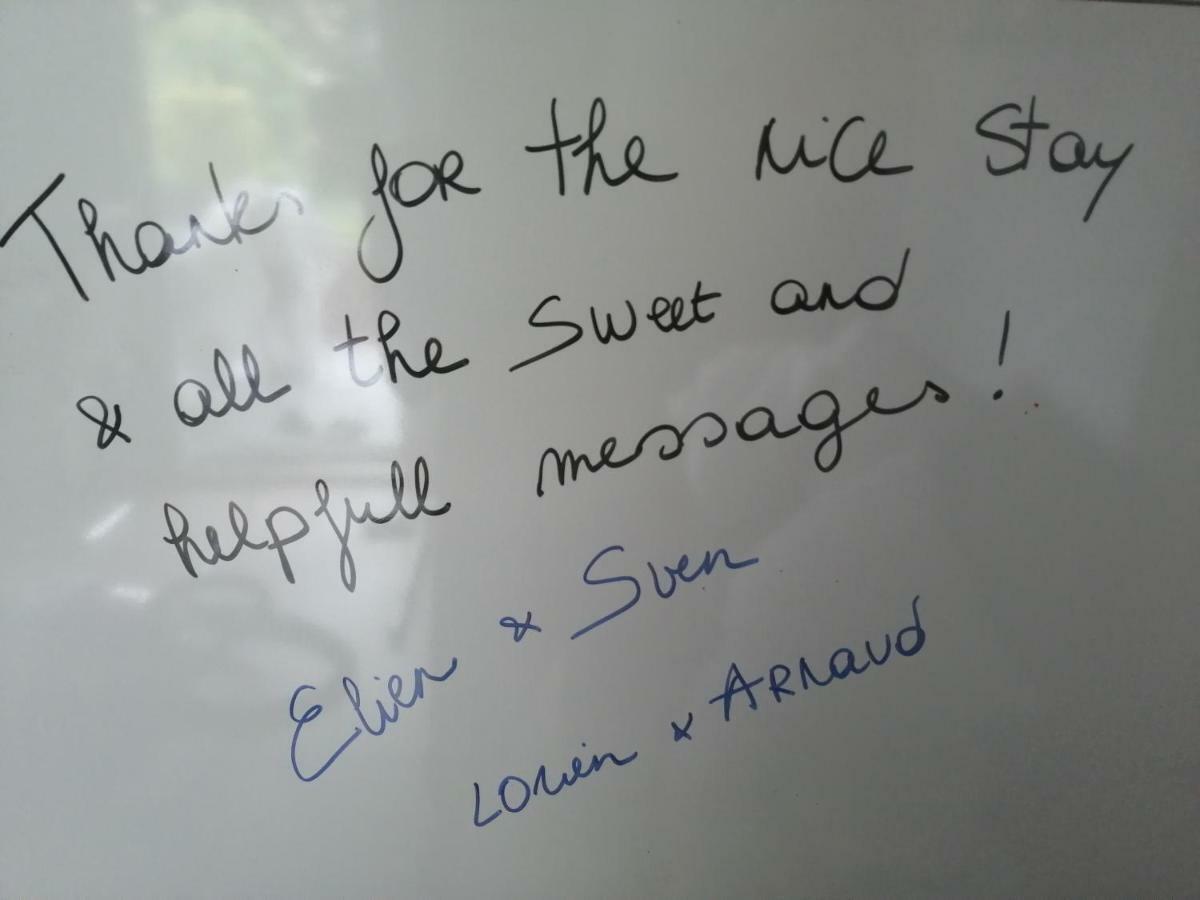 Thanks for the nice stay
& all the sweet and
helpfull messages!
Elien & Sven
Lorien & Arnaud